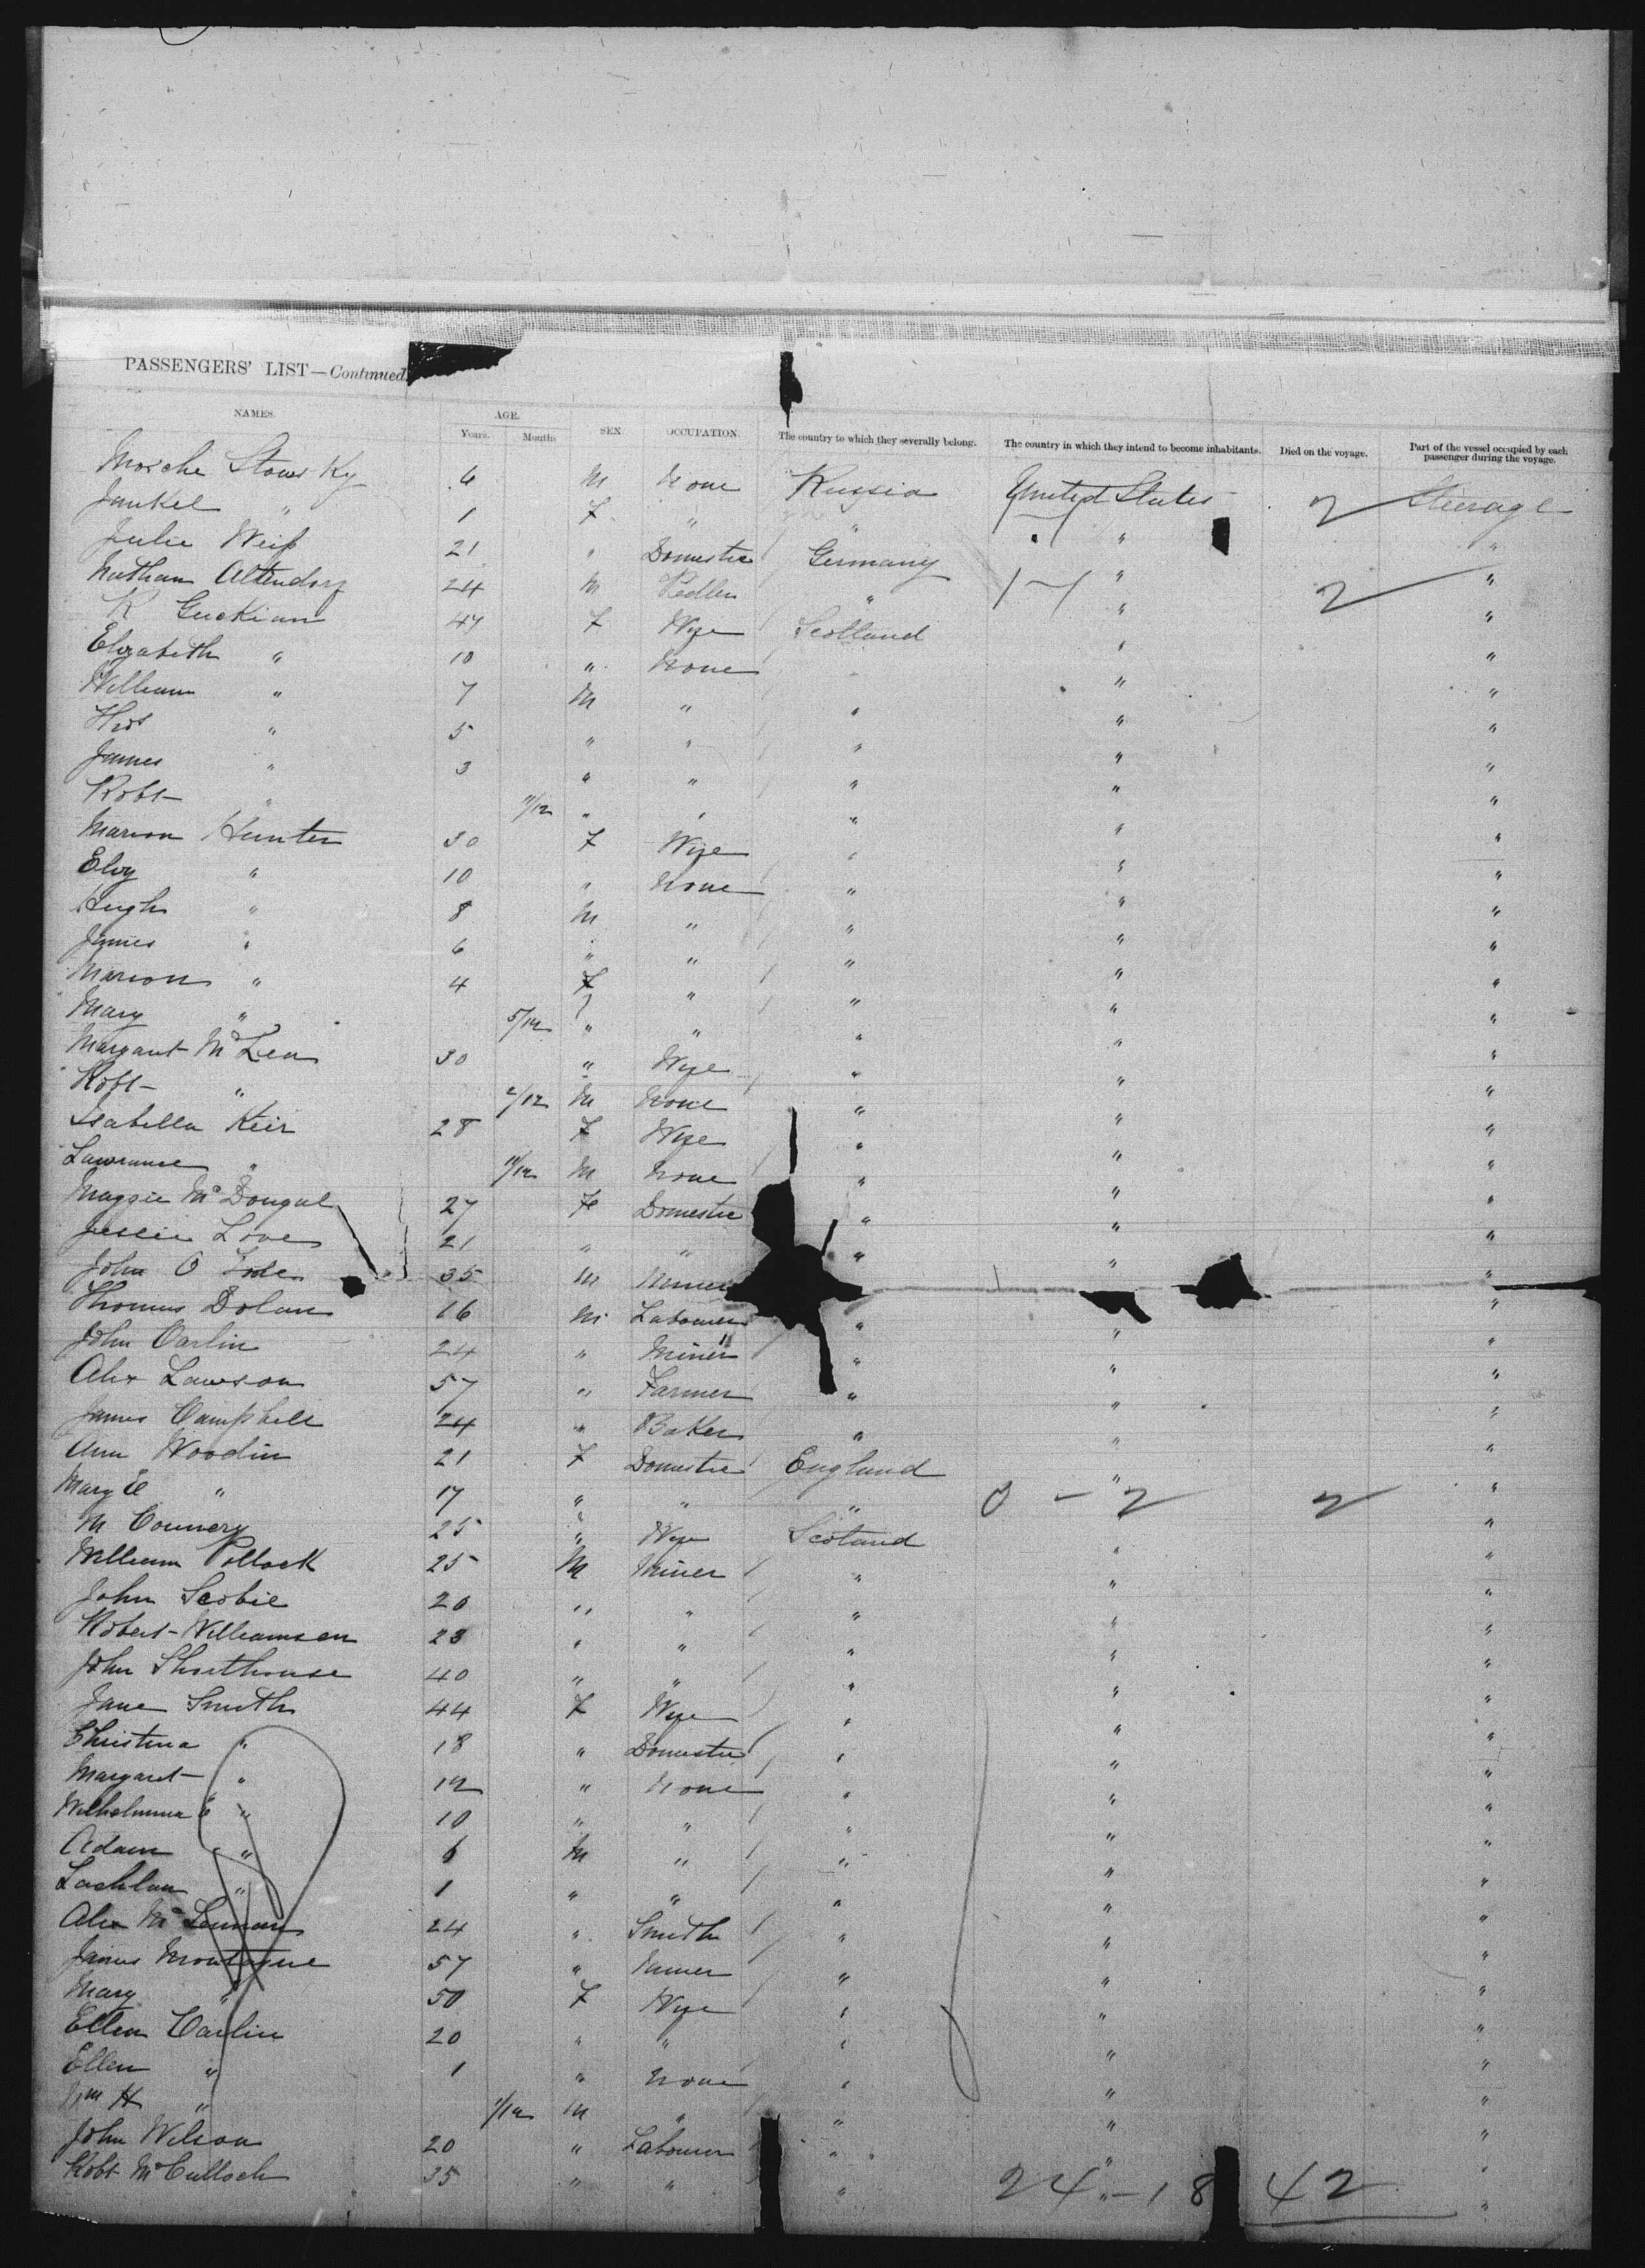 PASSENGERS' LIST—Continued.
NAMES. AGE. Years. Months SEX OCCUPATION. The country to which they severally belong. The country in which they intend to become inhabitants. Died on the voyage. Part of the vessel occupied by each passenger during the voyage.
Mosche 6 M None Russia United States 2 Steerage
Jankel " 1 F " " " "
Julie Weiß 21 " Domestic Germany " "
Nathan 24 M Pedler " 1-1 " 2 "
K Guckian 47 F Wife Scotland " "
Elizabeth " 10 " None " " "
William " 7 M " " " "
" 5 " " " " "
James " 3 " " " " "
Robt " 11/12 " " " " "
Marion Hunter 30 F Wife " " "
" 10 " None " " "
Hugh " 8 M " " " "
James " 6 " " " " "
Marion " 4 F " " " "
Mary " 5/12 " " " " "
Margaret 30 " Wife " " "
Robt " 2/12 M None " " "
Isabella Keir 28 F Wife " " "
Lawrance " 11/12 M None " " "
Maggie McDougal 27 F Domestic " " "
Jessie Love 21 " " " " "
John O 35 M " "
Thomas Dolan 16 M Labourer " " "
John Carlin 24 " Miner " " "
Alex Lawson 57 " Farmer " " "
James Campbell 24 " Baker " " "
Ann Woodin 21 F Domestic England " "
Mary E " 17 " " " 0 - 2 2 "
M Connery 25 " Wife Scotand " "
William Pollock 25 M Miner " " "
John Scobie 20 " " " " "
Robert Williamson 23 " " " " "
John Shorthouse 40 " " " " "
Jane Smith 44 F Wife " " "
Christina " 18 " Domestic " " "
Margaret " 12 " None " " "
Wilhelmina " 10 " " " " "
Adam " 6 M " " " "
Lachlan " 1 " " " " "
Alex McLennan 24 " Smith " " "
James Montague 57 " Miner " " "
Mary " 50 F Wife " " "
Ellen Carlin 20 " " " " "
Ellen " 1 " None " " "
Wm H " 1/12 M " " " "
John Wilson 20 " Labourer " " "
Robt McCulloch 35 " " " " "
24 - 18 42